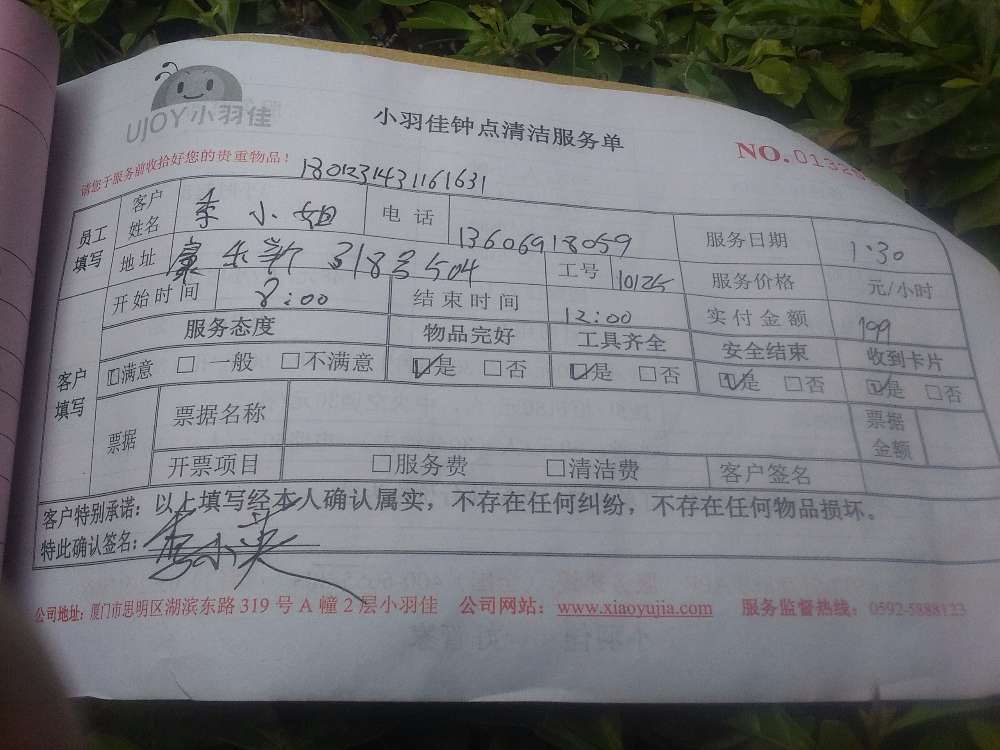 UJOY小羽佳
小羽佳钟点清洁服务单
NO. 0132
请您于服务前收拾好您的贵重物品！
180123143116 1631
员工填写 客户姓名 李小姐 电话 13606918059 服务日期 1.30
地址 康乐新 318号504 工号 10125 服务价格 元/小时
开始时间 8:00 结束时间 12:00 实付金额 199
客户填写 服务态度 物品完好 工具齐全 安全结束 收到卡片
☑满意 □一般 □不满意 ☑是 □否 ☑是 □否 ☑是 □否 ☑是 □否
票据 票据名称 票据金额
开票项目 □服务费 □清洁费 客户签名
客户特别承诺：以上填写经本人确认属实，不存在任何纠纷，不存在任何物品损坏。
特此确认签名：
公司地址：厦门市思明区湖滨东路 319 号 A 幢 2 层小羽佳 公司网站：www.xiaoyujia.com 服务监督热线：0592-5888123